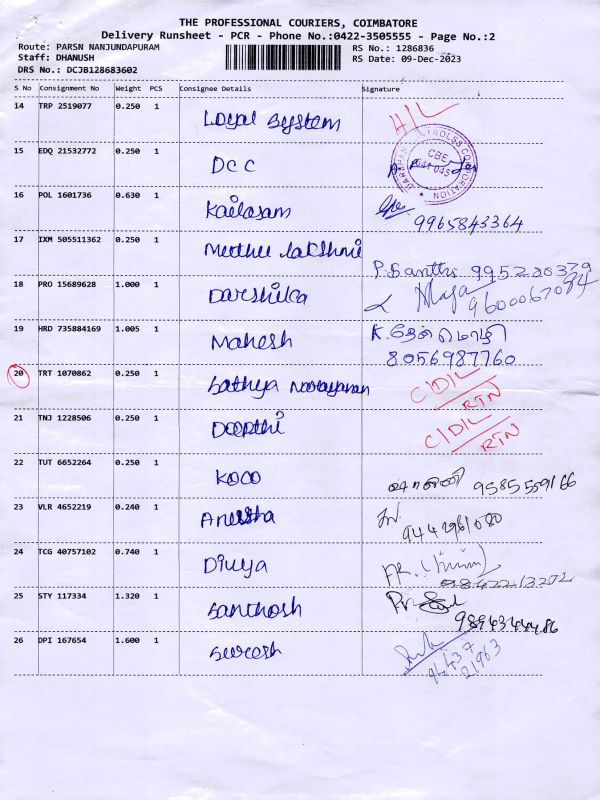 THE PROFESSIONAL COURIERS, COIMBATORE
Delivery Runsheet - PCR - Phone No.:0422-3505555 - Page No.:2
Route: PARSN NANJUNDAPURAM RS No.: 1286836
Staff: DHANUSH RS Date: 09-Dec-2023
DRS No.: DCJB128683602
S No Consignment No Weight PCS Consignee Details Signature
14 TRP 2519077 0.250 1 Loyal System H/L
15 EDQ 21532772 0.250 1 DCC
CBE
641 045
16 POL 1601736 0.630 1 Kailasam
9965843364
17 IXM 505511362 0.250 1 Meethu Lakshmi
P. Santhi
18 PRO 15689628 1.000 1 Darshika
9600067084
19 HRD 735884169 1.005 1 Mahesh K. தேன்மொழி
8056987760
20 TRT 1070862 0.250 1 Sathya Narayanan C/D/L
RTN
21 TNJ 1228506 0.250 1 Deepthi C/D/L
RTN
22 TUT 6652264 0.250 1 KOCO 9585559166
23 VLR 4652219 0.240 1
9442961080
24 TCG 40757102 0.740 1 Divya
25 STY 117334 1.320 1 Santhosh
26 DPI 167654 1.600 1 Suresh
94437
21963